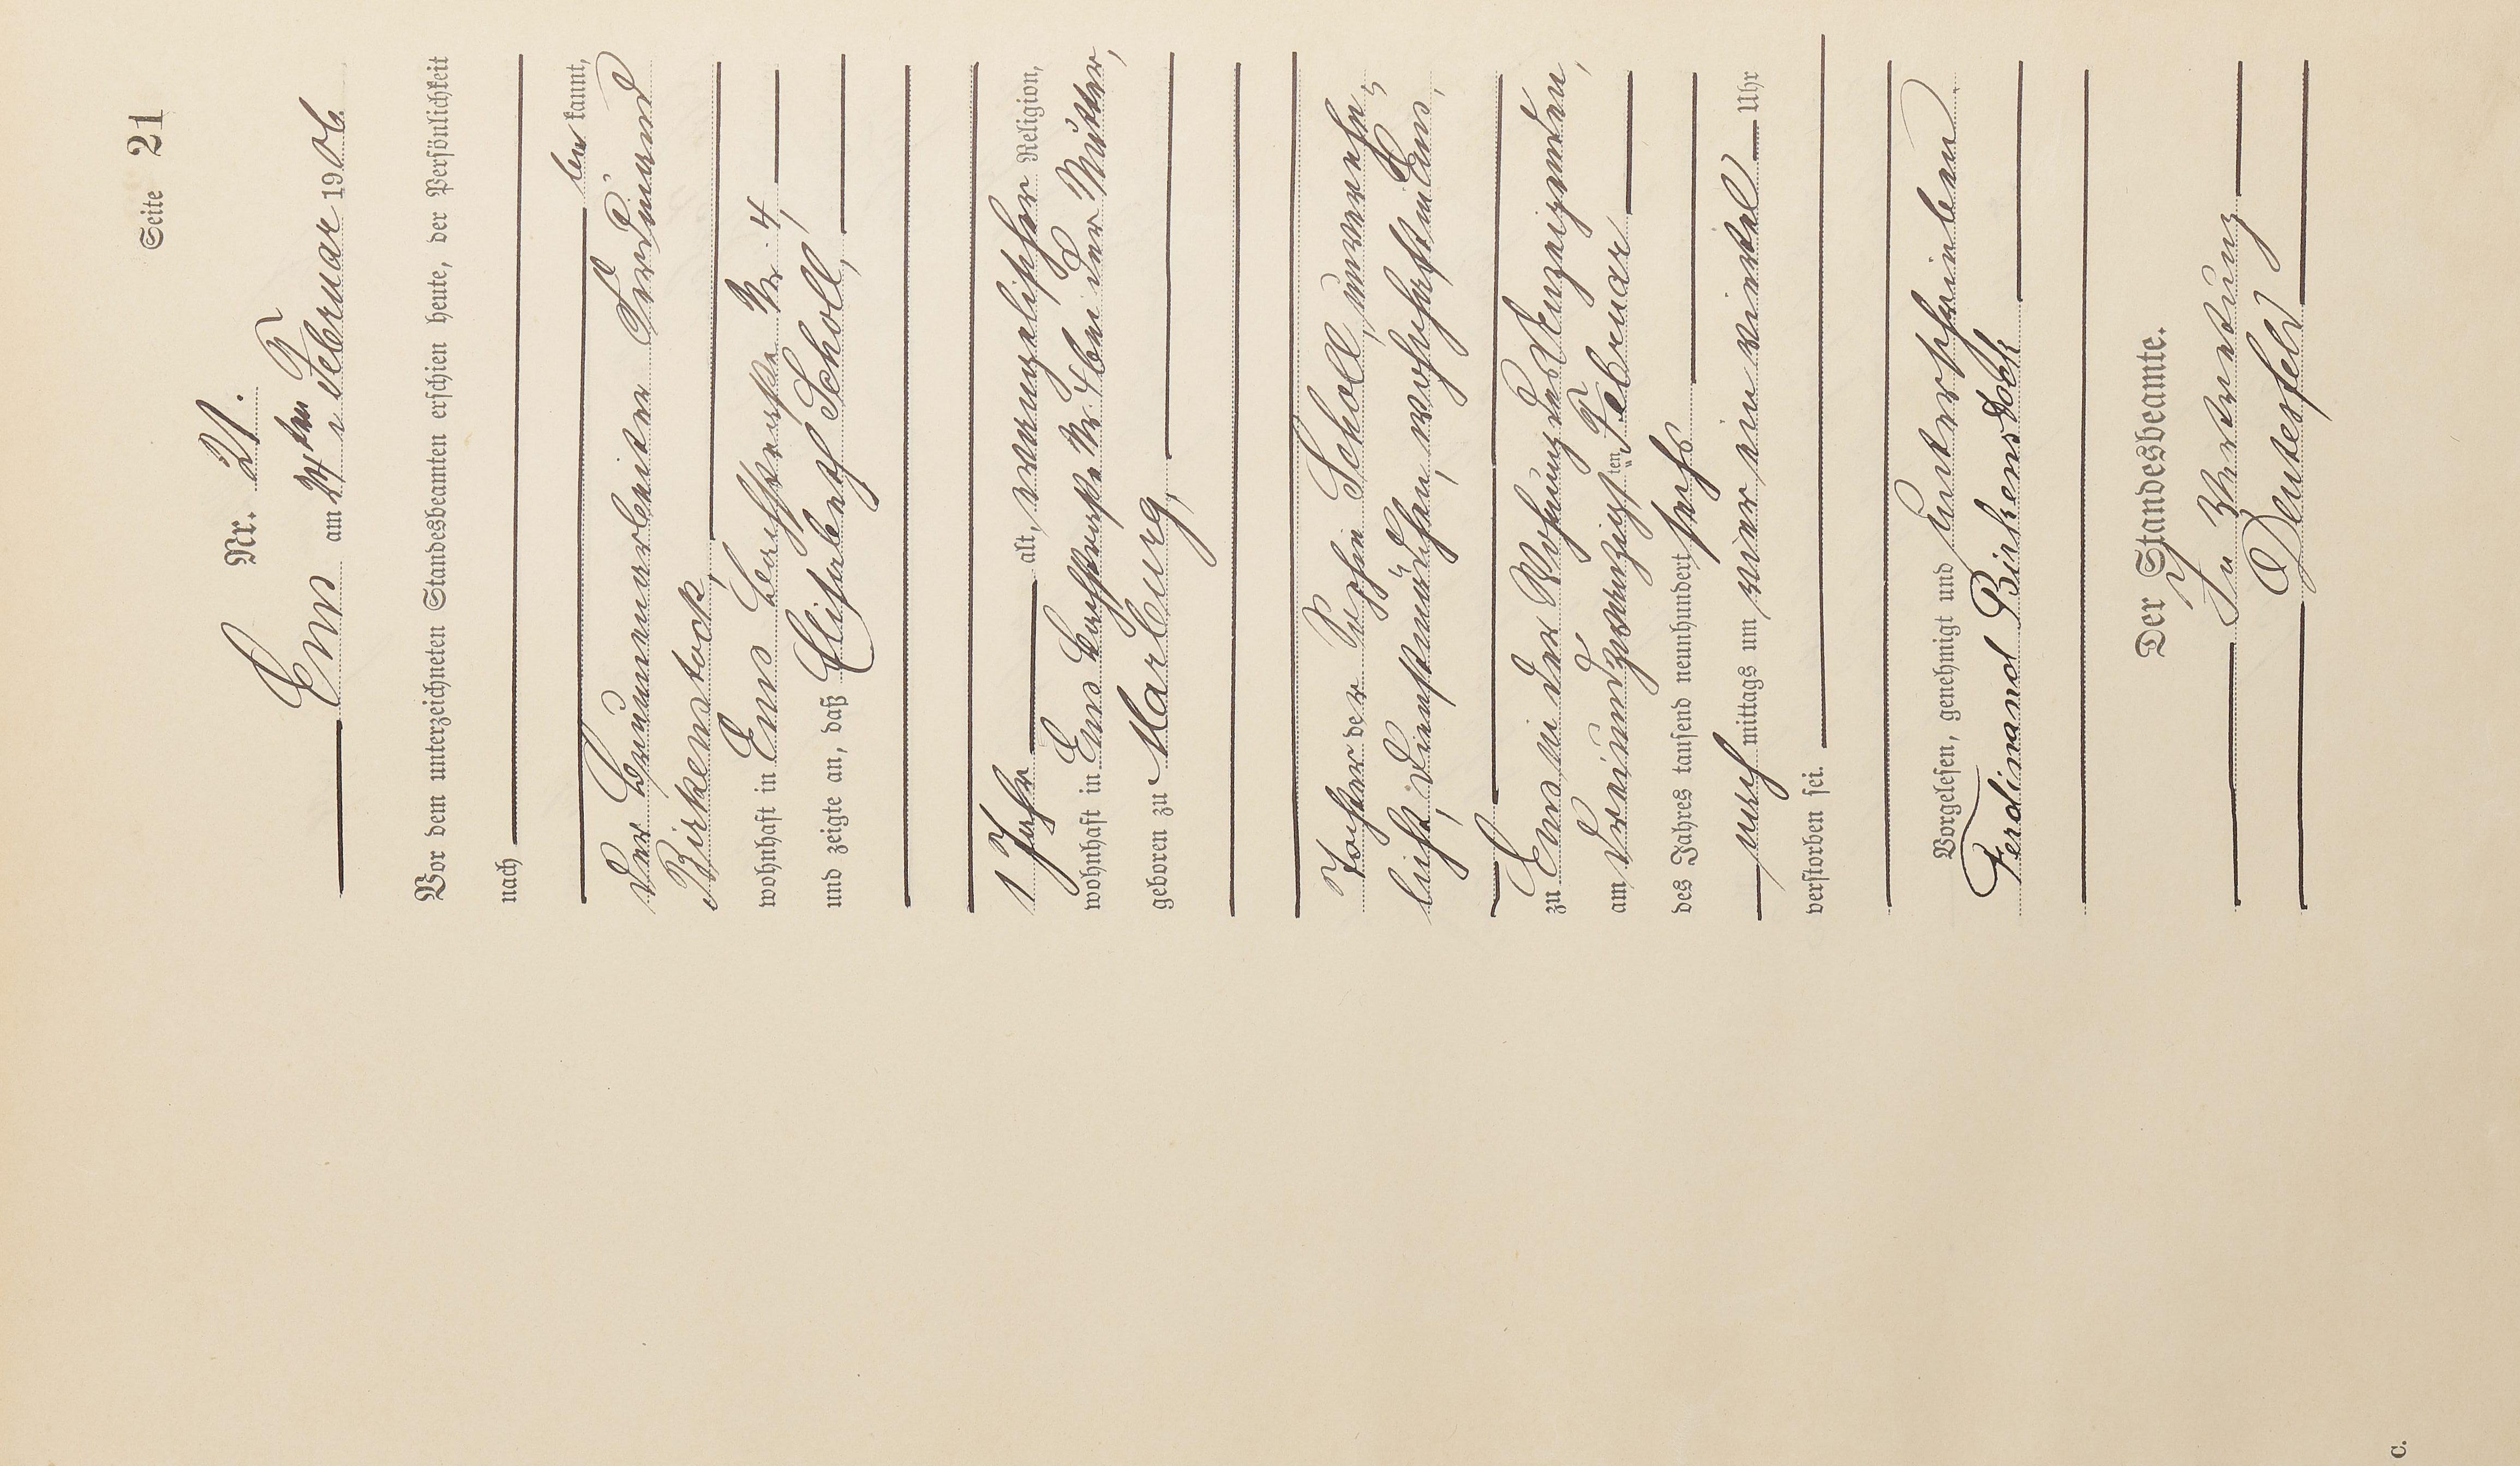 Seite 21
Nr. 21.
Ems am 24ten Februar 1906.
Vor dem unterzeichneten Standesbeamten erschien heute, der Persönlichkeit
nach
be kannt,
der Brunnenarbeiter Ferdinand
Birkenstock,
wohnhaft in Ems Bachstraße Nr. 4,
und zeigte an, daß Elisabeth Scholl,
1 Jahr alt, evangelischer Religion,
wohnhaft in Ems Bachstraße Nr. 4 bei der Mutter,
geboren zu Marburg,
Tochter der Sophie Scholl, unverehe-
licht, Dienstmädchen, wohnhaft in Ems,
zu Ems in der Wohnung des Anzeigenden,
am dreiundzwanzigsten Februar
des Jahres tausend neunhundert sechs
nach mittags um vier ein viertel Uhr
verstorben sei.
Vorgelesen, genehmigt und unterschrieben
Ferdinand Birkenstock
Der Standesbeamte.
In Vertretung
C.